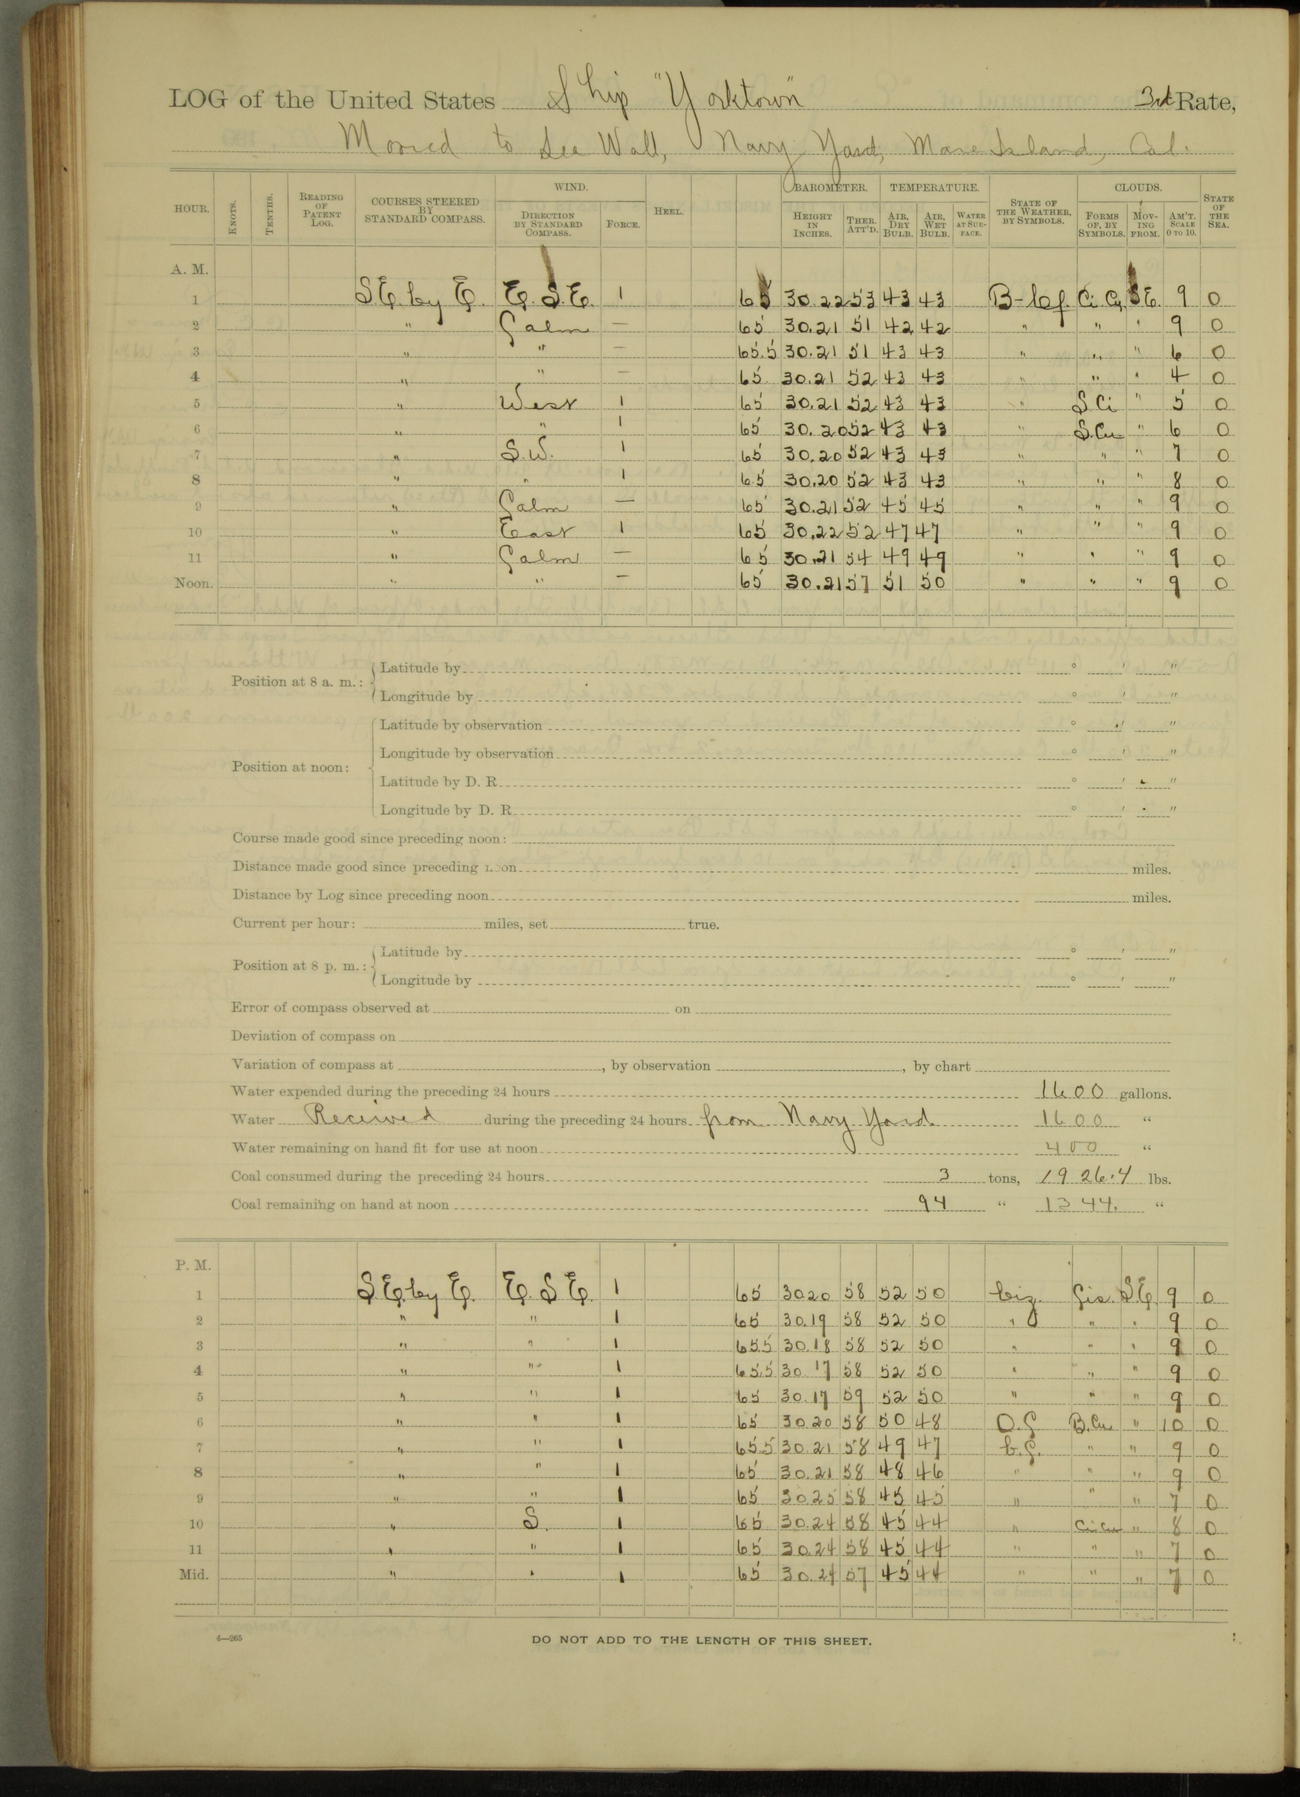 LOG of the United States Ship "Yorktown" 3rd Rate,
Moored to Sea Wall, Navy Yard, Mare Island, Cal.
HOUR. KNOTS. TENTHS. READING OF PATENT LOG. COURSES STEERED BY STANDARD COMPASS. WIND. DIRECTION BY STANDARD COMPASS. FORCE. HEEL. BAROMETER. HEIGHT IN INCHES. THER. ATT'D. TEMPERATURE. AIR, DRY BULB. AIR, WET BULB. WATER AT SURFACE. STATE OF THE WEATHER, BY SYMBOLS. CLOUDS. FORMS OF, BY SYMBOLS. MOVING FROM. AM'T. SCALE 0 TO 10. STATE OF THE SEA.
A. M.
1 S.E. by E. E. S.E. 1 65 30.22 53 43 43 B-cf. Ci Cu S.E. 9 0
2 " Calm — 65 30.21 51 42 42 " " " 9 0
3 " " — 65.5 30.21 51 43 43 " " " 6 0
4 " " — 65 30.21 52 43 43 " " " 4 0
5 " West 1 65 30.21 52 43 43 " S Ci " 5 0
6 " " 1 65 30.20 52 43 43 " S.Cu " 6 0
7 " S.W. 1 65 30.20 52 43 43 " " " 7 0
8 " " 1 65 30.20 52 43 43 " " " 8 0
9 " Calm — 65 30.21 52 45 45 " " " 9 0
10 " East 1 65 30.22 52 47 47 " " " 9 0
11 " Calm — 65 30.21 54 49 49 " " " 9 0
Noon. " " — 65 30.21 57 51 50 " " " 9 0
Position at 8 a. m.: Latitude by ° ′ ″
Longitude by ° ′ ″
Position at noon: Latitude by observation ° ′ ″
Longitude by observation ° ′ ″
Latitude by D. R. ° ′ ″
Longitude by D. R. ° ′ ″
Course made good since preceding noon:
Distance made good since preceding noon miles.
Distance by Log since preceding noon miles.
Current per hour: miles, set true.
Position at 8 p. m.: Latitude by ° ′ ″
Longitude by ° ′ ″
Error of compass observed at on
Deviation of compass on
Variation of compass at , by observation , by chart
Water expended during the preceding 24 hours 1600 gallons.
Water Received during the preceding 24 hours from Navy Yard 1600 "
Water remaining on hand fit for use at noon 400 "
Coal consumed during the preceding 24 hours 3 tons, 1926.4 lbs.
Coal remaining on hand at noon 94 " 1344. "
P. M.
1 S.E. by E. E. S E. 1 65 30.20 58 52 50 Cis. S.E. 9 0
2 " " 1 65 30.19 58 52 50 " " " 9 0
3 " " 1 65.5 30.18 58 52 50 " " " 9 0
4 " " 1 65.5 30.17 58 52 50 " " " 9 0
5 " " 1 65 30.19 59 52 50 " " " 9 0
6 " " 1 65 30.20 58 50 48 O.C B.Cu " 10 0
7 " " 1 65.5 30.21 58 49 47 b.C. " " 9 0
8 " " 1 65 30.21 58 48 46 " " " 9 0
9 " " 1 65 30.25 58 45 45 " " " 7 0
10 " S. 1 65 30.24 58 45 44 " Ci Cu " 8 0
11 " " 1 65 30.24 58 45 44 " " " 7 0
Mid. " " 1 65 30.24 57 45 44 " " " 7 0
6—265
DO NOT ADD TO THE LENGTH OF THIS SHEET.